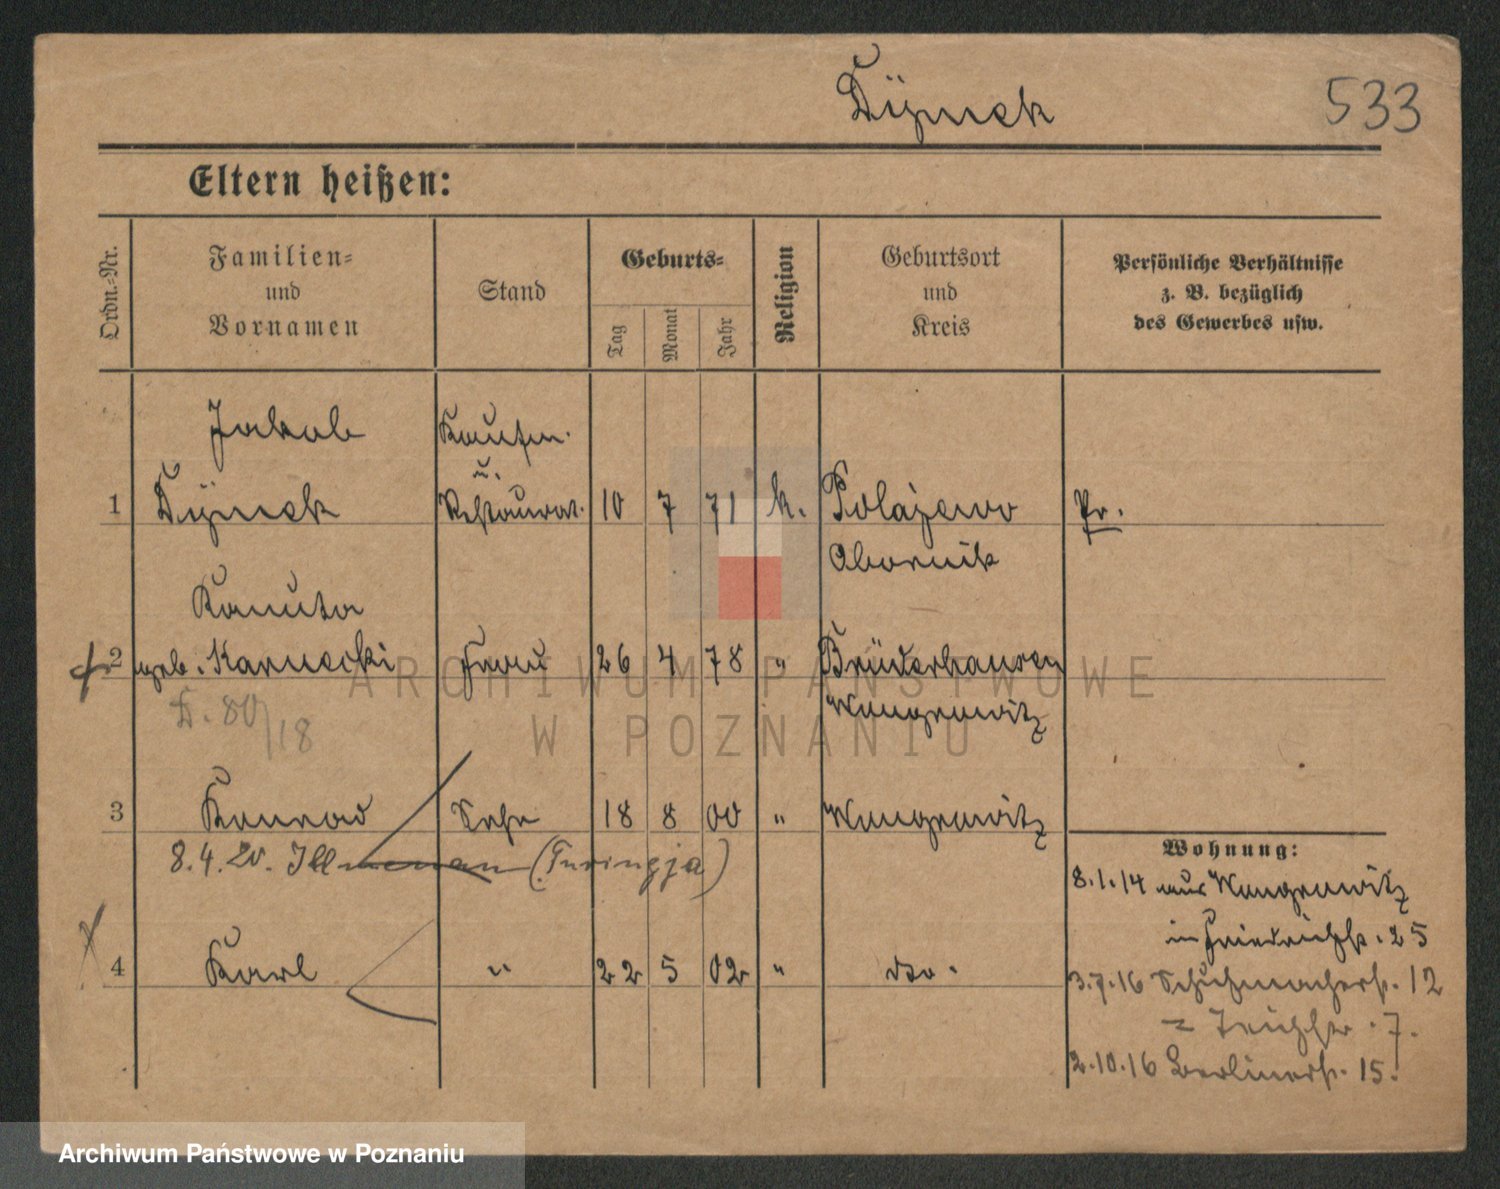 Dÿmek
533
Eltern heißen:
Ordn.-Nr.
Familien- und Vornamen
Stand
Geburts-
Tag
Monat
Jahr
Religion
Geburtsort und Kreis
Persönliche Verhältnisse z. B. bezüglich des Gewerbes usw.
Jakob
Kaufm.
u.
1 Dÿmek Restaurat. 10 7 71 k. Polajewo Pr.
Obornik
Kanuta
2 geb. Karnecki Frau 26 4 78 " Brüderhausen
D. 80/18
Wongrowitz
3 Konrad Sohn 18 8 00 " Wongrowitz
8.4.20. Illmenau (Turingja)
4 Karl " 22 5 02 " do.
Wohnung:
8.1.14 aus Wongrowitz
in Friedrichstr. 25
3.7.16 Schuhmacherstr. 12
= Teichstr. 7.
2.10.16 Berlinerstr. 15.
ARCHIWUM PAŃSTWOWE
W POZNANIU
Archiwum Państwowe w Poznaniu